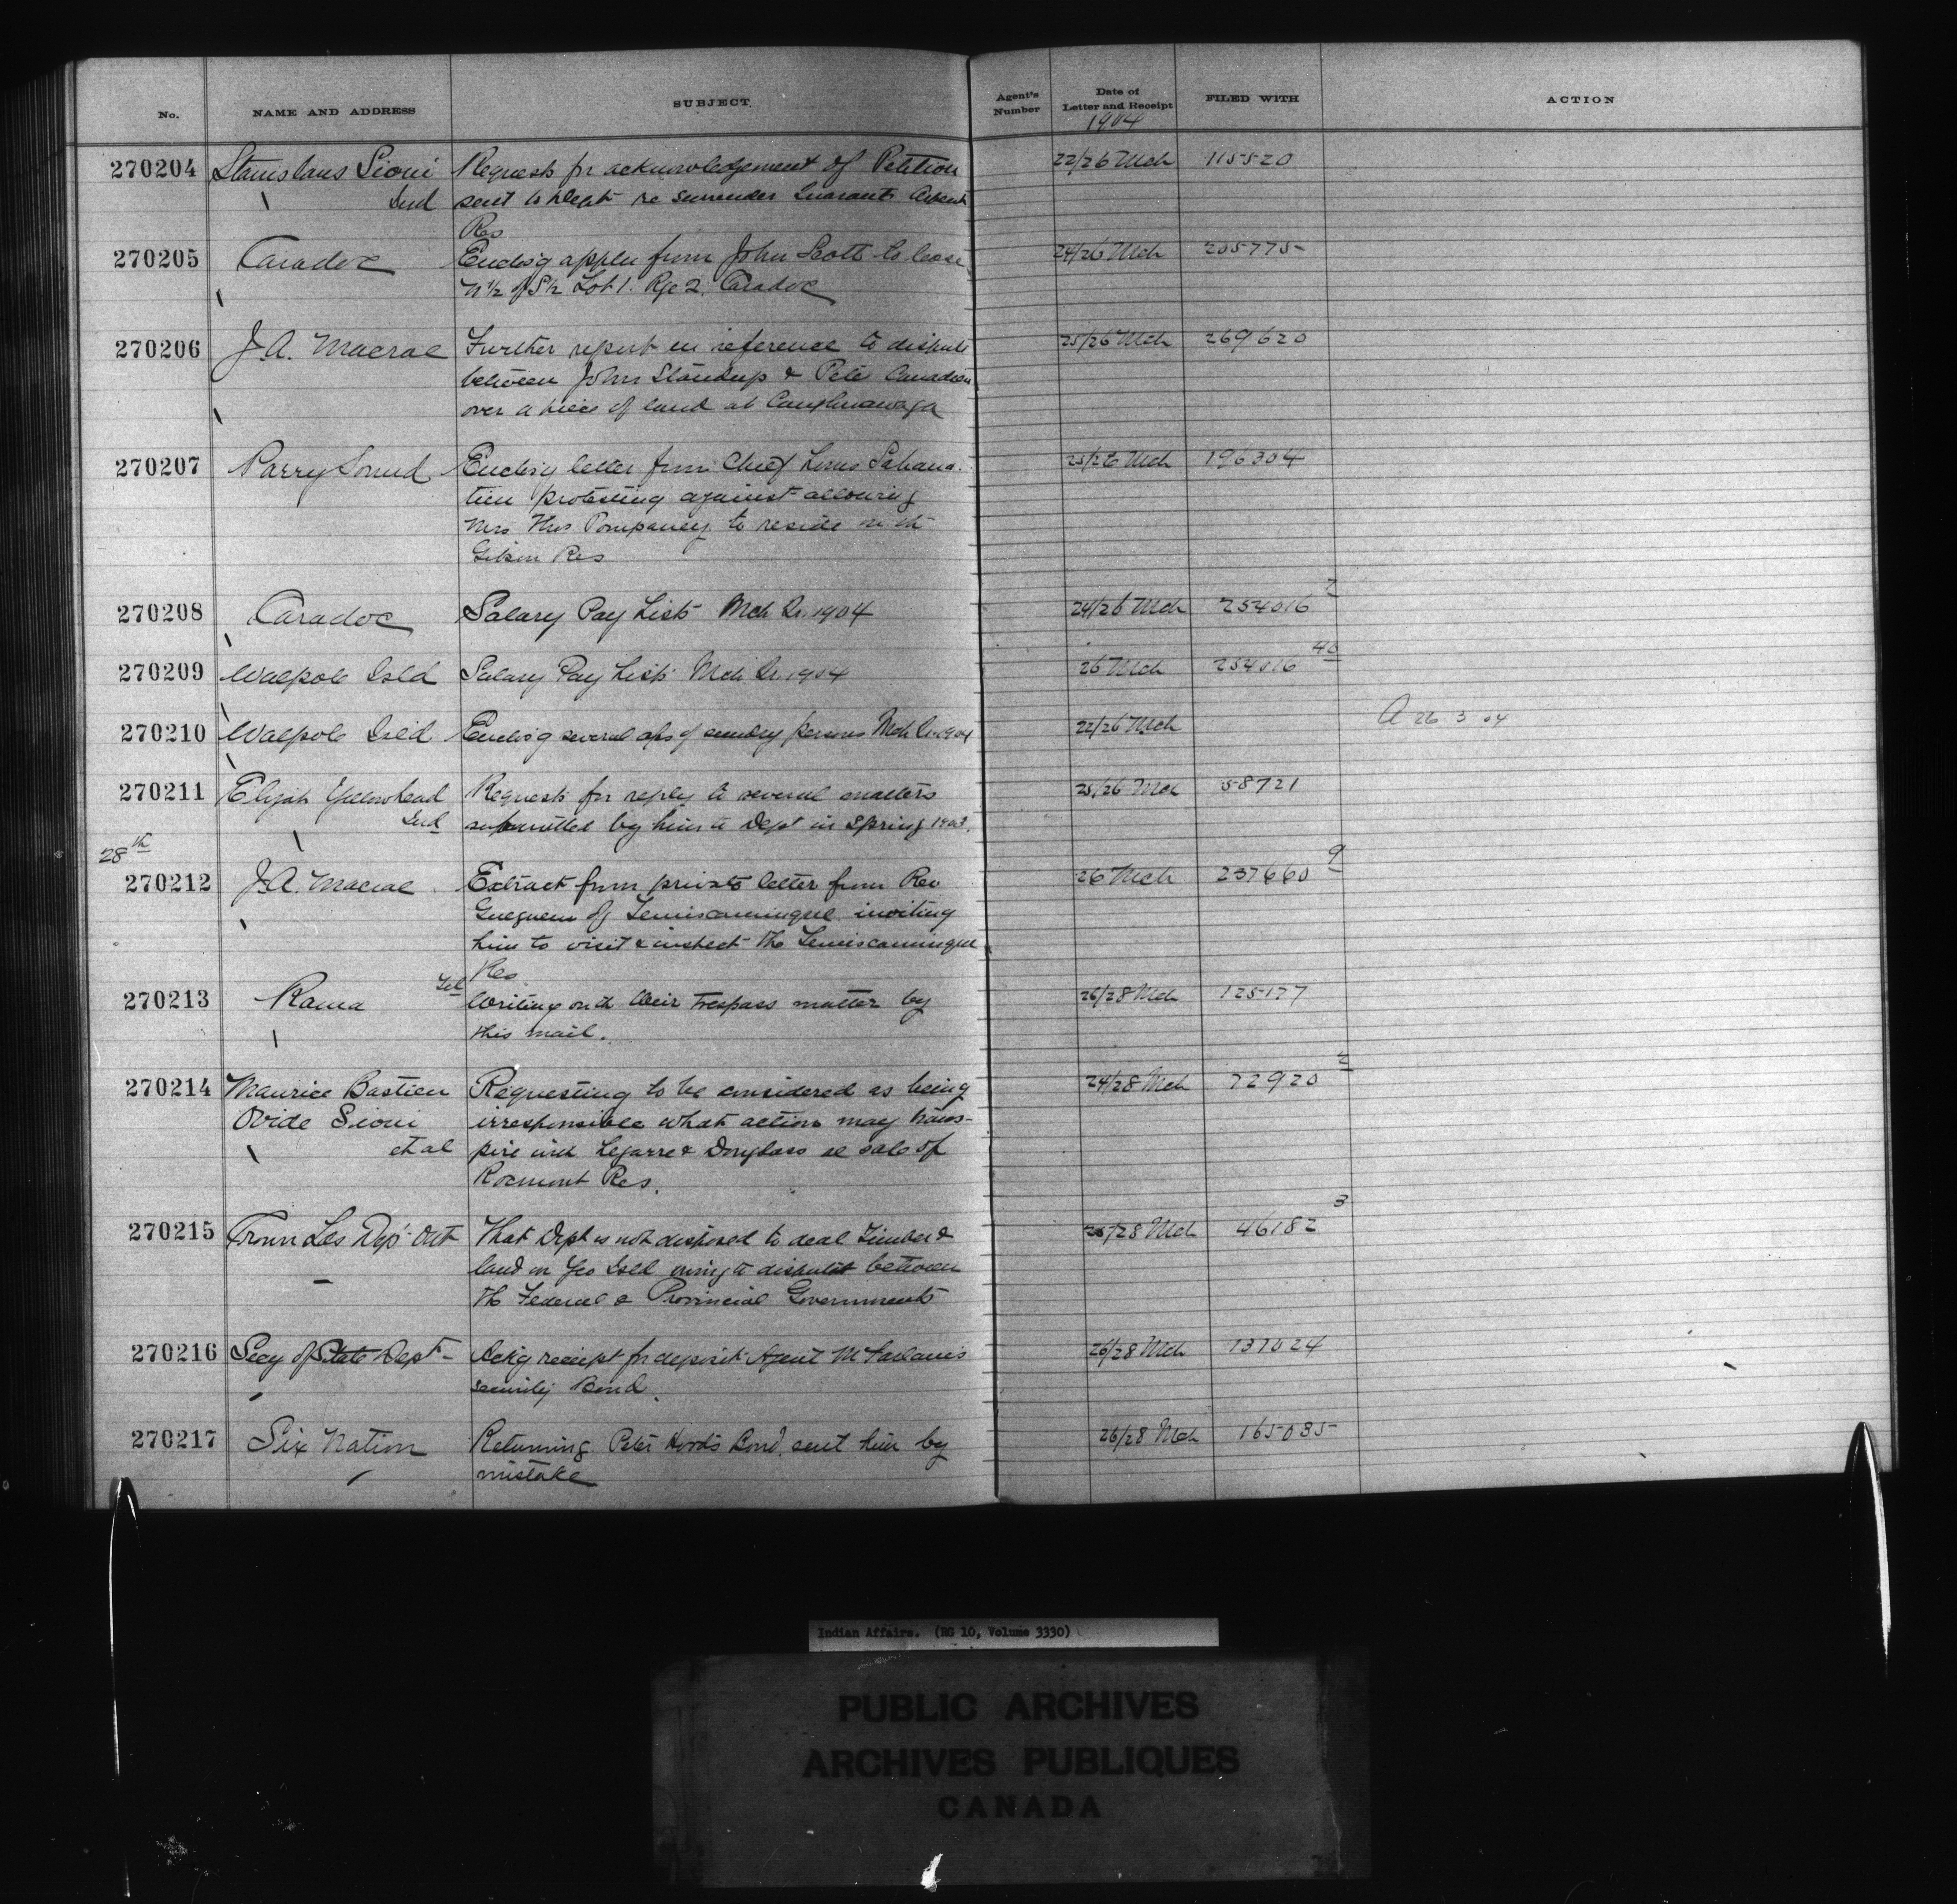 No. NAME AND ADDRESS SUBJECT Agent's Number Date of Letter and Receipt FILED WITH ACTION
1904
270204 Stanislaus Sioui Requests for acknowledgement of Petition 22/26 Mch 115520
Ind sent to Dept re surrender Quarante Arpents
Res
270205 Caradoc Enclos'g applcn from John Scott to lease 24/26 Mch 205775
N 1/2 of S 1/2 Lot 1. Rge 2. Caradoc
270206 J.A. Macrae Further report in reference to dispute 25/26 Mch 269620
between John Standup & Pete Canadien
over a piece of land at Caughnawaga
270207 Parry Sound Enclos'g letter from Chief Louis Sahana- 25/26 Mch 196304
tien protesting against allowing
Mrs. Thos Pompaney to reside on the
Gibson Res
270208 Caradoc Salary Pay Lists Mch Qr. 1904 24/26 Mch 254016 2
270209 Walpole Isld Salary Pay Lists Mch Qr. 1904 26 Mch 254016 40
270210 Walpole Isld Enclos'g several a/cs of sundry persons Mch Qr. 1904 22/26 Mch A 26 3 04
270211 Elijah Yellowhead Requests for reply to several matters 25/26 Mch 58721
Ind submitted by him to Dept in Spring 1903.
28th
270212 J.A. Macrae Extract from private letter from Rev 26 Mch 237660 9
Gueguen of Temiscamingue inviting
him to visit & inspect the Temiscamingue
Res
270213 Rama Tel Writing on the Weir trespass matter by 26/28 Mch 125177
this mail.
270214 Maurice Bastien Requesting to be considered as being 24/28 Mch 72920 2
Ovide Sioui irresponsible what action may trans-
et al pire with Legarre & Douglass re sale of
Rocmont Res.
270215 Crown Lds Dep't Ont That Dept is not disposed to deal Timber & 25/28 Mch 46182 3
land on Geo Isld owing to disputes between
the Federal & Provincial Governments
270216 Secy of State Dept Ackg receipt for deposit Agent McFarlane's 26/28 Mch 137024
security Bond.
270217 Six Nation Returning Peter Hood's Bond, sent him by 26/28 Mch 165035
mistake
Indian Affairs. (RG 10, Volume 3330)
PUBLIC ARCHIVES
ARCHIVES PUBLIQUES
CANADA